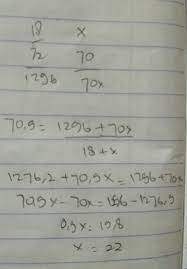 18 x
72 70
1296 70x
70,9 = 1296 + 70x
18 + x
1276,2 + 70,9x = 1296 + 70x
70,9x - 70x = 1296 - 1276,2
0,9x = 19,8
x = 22